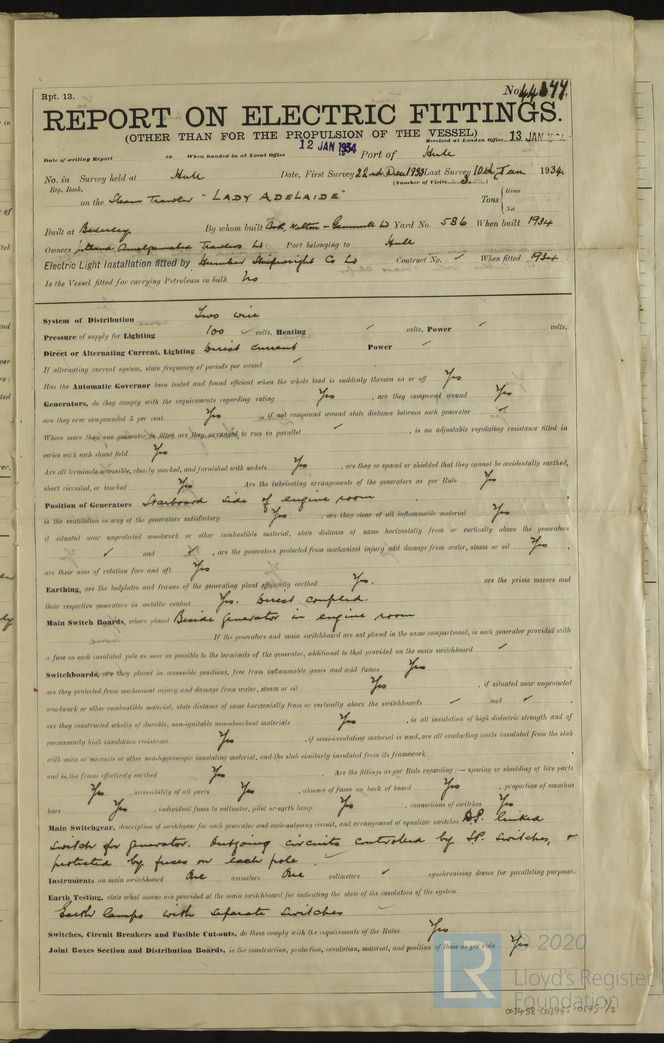 Rpt. 13.
No. 44677
REPORT ON ELECTRIC FITTINGS.
(OTHER THAN FOR THE PROPULSION OF THE VESSEL)
Received at London Office 13 JAN 1934
Date of writing Report 19 When handed in at Local Office 12 JAN 1934 Port of Hull
No. in Reg. Book. Survey held at Hull Date, First Survey 22nd Dec 1933 Last Survey 10th Jan 1934
(Number of Visits 3)
on the Steam Trawler "LADY ADELAIDE" Tons { Gross Net
Built at Beverley By whom built Cook, Welton & Gemmell Ld Yard No. 586 When built 1934
Owners Jutland Amalgamated Trawlers Ld Port belonging to Hull
Electric Light Installation fitted by Humber Shipwright Co Ld Contract No. ✓ When fitted 1934
Is the Vessel fitted for carrying Petroleum in bulk No
System of Distribution Two wire
Pressure of supply for Lighting 100 ✓ volts, Heating ✓ volts, Power ✓ volts.
Direct or Alternating Current, Lighting Direct current Power ✓
If alternating current system, state frequency of periods per second ✓
Has the Automatic Governor been tested and found efficient when the whole load is suddenly thrown on or off Yes
Generators, do they comply with the requirements regarding rating Yes , are they compound wound Yes
are they over compounded 5 per cent. Yes , if not compound wound state distance between each generator ✓
Where more than one generator is fitted are they arranged to run in parallel ✓ , is an adjustable regulating resistance fitted in
series with each shunt field Yes
Are all terminals accessible, clearly marked, and furnished with sockets Yes , are they so spaced or shielded that they cannot be accidentally earthed,
short circuited, or touched Yes Are the lubricating arrangements of the generators as per Rule Yes
Position of Generators Starboard side of engine room
is the ventilation in way of the generators satisfactory Yes , are they clear of all inflammable material Yes
if situated near unprotected woodwork or other combustible material, state distance of same horizontally from or vertically above the generators
✓ and ✓ , are the generators protected from mechanical injury and damage from water, steam or oil Yes ,
are their axes of rotation fore and aft Yes
Earthing, are the bedplates and frames of the generating plant efficiently earthed Yes. are the prime movers and
their respective generators in metallic contact Yes. Direct coupled.
Main Switch Boards, where placed Beside generator in engine room
If the generators and main switchboard are not placed in the same compartment, is each generator provided with
a fuse on each insulated pole as near as possible to the terminals of the generator, additional to that provided on the main switchboard ✓
Switchboards, are they placed in accessible positions, free from inflammable gases and acid fumes Yes ,
are they protected from mechanical injury and damage from water, steam or oil Yes , if situated near unprotected
woodwork or other combustible material, state distance of same horizontally from or vertically above the switchboards ✓ and ✓ ,
are they constructed wholly of durable, non-ignitable non-absorbent materials Yes , is all insulation of high dielectric strength and of
permanently high insulation resistance Yes , if semi-insulating material is used, are all conducting parts insulated from the slab
with mica or micanite or other non-hygroscopic insulating material, and the slab similarly insulated from its framework ,
and is the frame effectively earthed Yes . Are the fittings as per Rule regarding :— spacing or shielding of live parts
Yes , accessibility of all parts Yes , absence of fuses on back of board Yes , proportion of omnibus
bars Yes , individual fuses to voltmeter, pilot or earth lamp Yes , connections of switches Yes
Main Switchgear, description of switchgear for each generator and each outgoing circuit, and arrangement of equalizer switches D.P. linked
switch for generator. Outgoing circuits controlled by S.P. switches, &
protected by fuses on each pole.
Instruments on main switchboard One ammeters One voltmeters ✓ synchronising device for paralleling purposes.
Earth Testing, state what means are provided at the main switchboard for indicating the state of the insulation of the system
Earth lamps with separate switches
Switches, Circuit Breakers and Fusible Cut-outs, do these comply with the requirements of the Rules Yes
Joint Boxes Section and Distribution Boards, is the construction, protection, insulation, material, and position of these as per rule Yes
© 2020
LR
Lloyd's Register
Foundation
003458-003465-0143 1/2